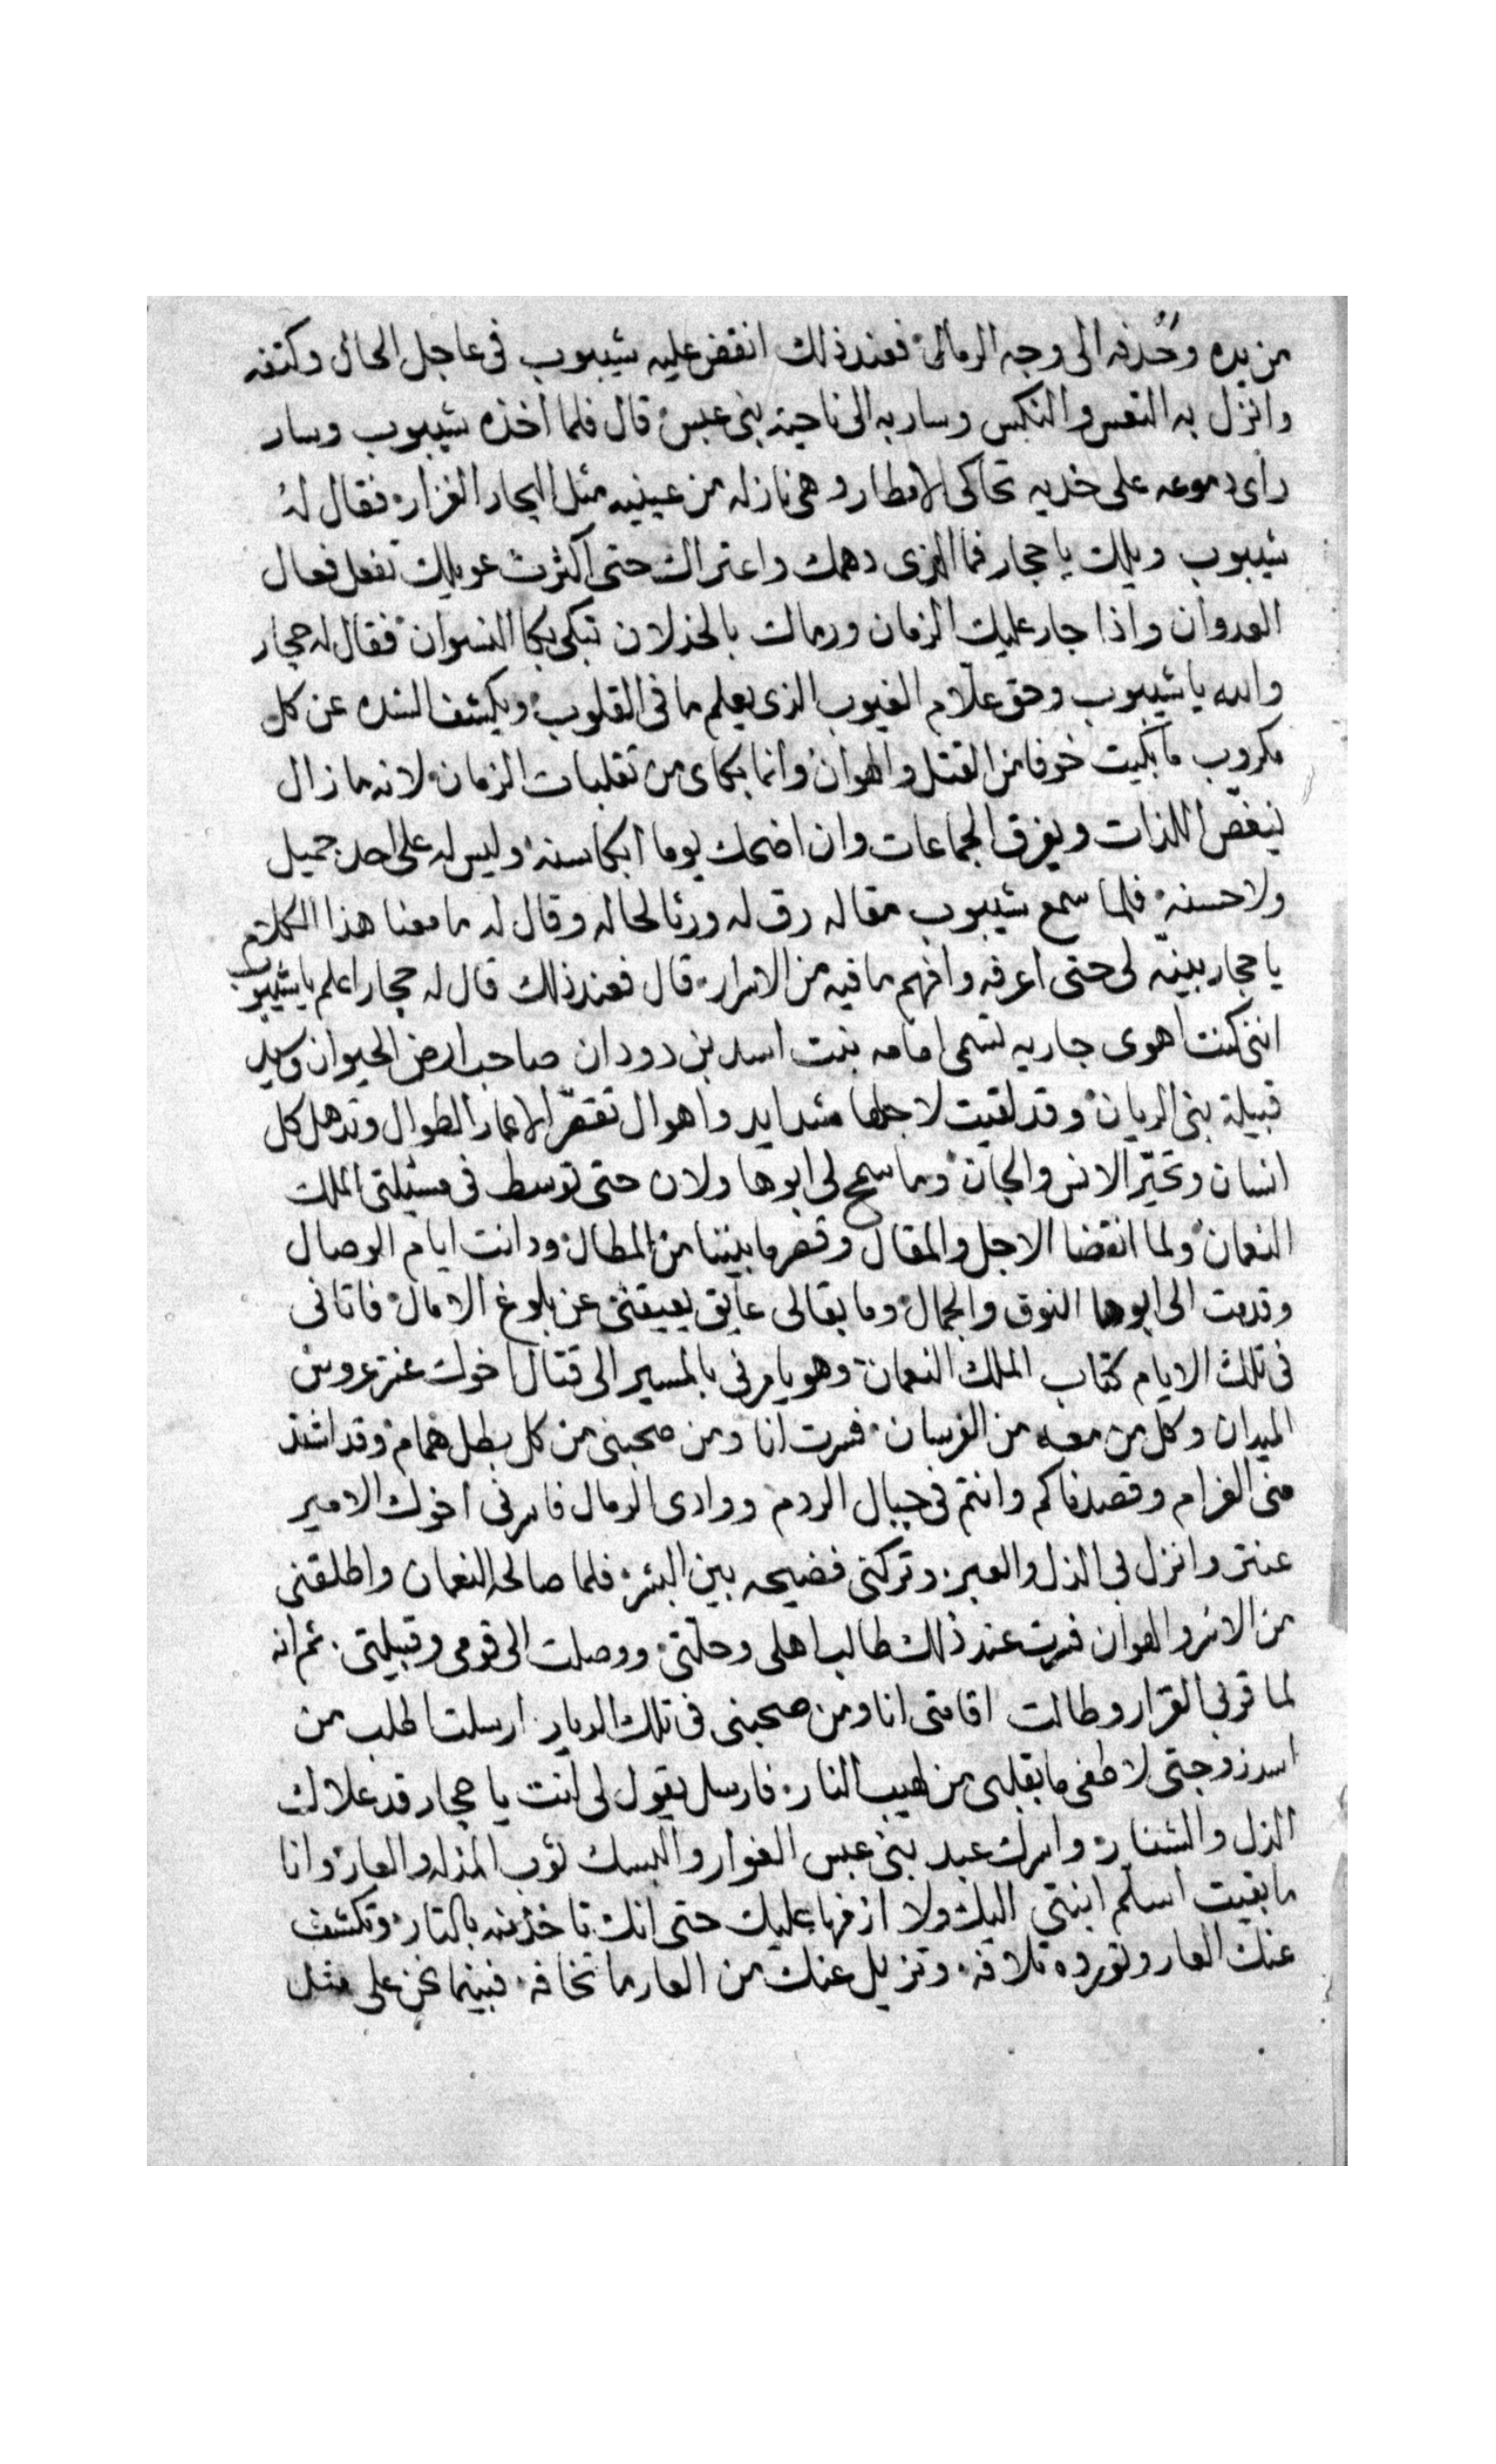 من يده وحذفه الى وجه الرمال فعند ذلك انقض عليه شيبوب فى عاجل الحال وكتفه
وانزل به التعس والنكس وسار به الى ناحية بنى عبس قال فلما اخذه شيبوب وسار
راى دموعه على خديه تحاكى الامطار وهى نازله من عينيه مثل البحار الغزار فقال له
شيبوب ويلك يا حجار فما الذى دهمك واعتراك حتى اكثرت عويلك تفعل فعال
العدوان واذا جار عليك الزمان ورماك بالخذلان تبكى بكا النسوان فقال له حجار
والله يا شيبوب وحق علّام الغيوب الذى يعلم ما فى القلوب ويكشف الشده عن كل
مكروب ما بكيت خوفا من القتل والهوان وانما بكاى من تقلبات الزمان لانه ما زال
ينغّص اللذات ويفرق الجماعات وان اضحك يوما ابكا سنه وليس له على احد جميل
ولا حسنه فلما سمع شيبوب مقاله رق له ورثا لحاله وقال له ما معنا هذا الكلام
يا حجار بينّه لى حتى اعرفه وافهم ما فيه من الاسرار قال فعند ذلك قال له حجار اعلم يا شيبوب
اننى كنت اهوى جاريه تسمى امامه بنت اسد بن دودان صاحب ارض الحيوان وسيد
قبيلة بنى الريان وقد لقيت لاجلها شدايد واهوال تقصّر الاعمار الطوال وتذهل كل
انسان وتحيّر الانس والجان وما سمح لى ابوها ولان حتى توسط فى مسئلتى الملك
النعمان ولما انقضا الاجل والمقال وقصر ما بيننا من المطال ودانت ايام الوصال
وقدمت الى ابوها النوق والجمال وما بقا لى عايق يعيقنى عن بلوغ الامال فاتانى
فى تلك الايام كتاب الملك النعمان وهو يامرنى بالمسير الى قتال اخوك عنتر عروس
الميدان وكل من معه من الفرسان فسرت انا ومن صحبنى من كل بطل همام وقد اشتد
منى الغرام وقصدناكم وانتم فى جبال الردم ووادى الرمال فاسرنى اخوك الامير
عنتر وانزل بى الذل والعبر وتركنى فضيحه بين البشر فلما صالحه النعمان واطلقنى
من الاسر والهوان فسرت عند ذلك طالب اهلى وحلّتى ووصلت الى قومى وقبيلتى ثم انه
لما قر بى القرار وطالت اقامتى انا ومن صحبنى فى تلك الديار ارسلت اطلب من
اسد زوجتى لاطفى ما بقلبى من لهيب النار فارسل يقول لى انت يا حجار قد علاك
الذل والشنار واسرك عبد بنى عبس الغوار والبسك ثوب المذله والعار وانا
ما بقيت اسلّم ابنتى اليك ولا ازفها عليك حتى انك تاخذ منه بالتار وتكشف
عنك العار وتورده تلافه وتزيل عنك من العار ما تخافه فبينما نحن على مثل